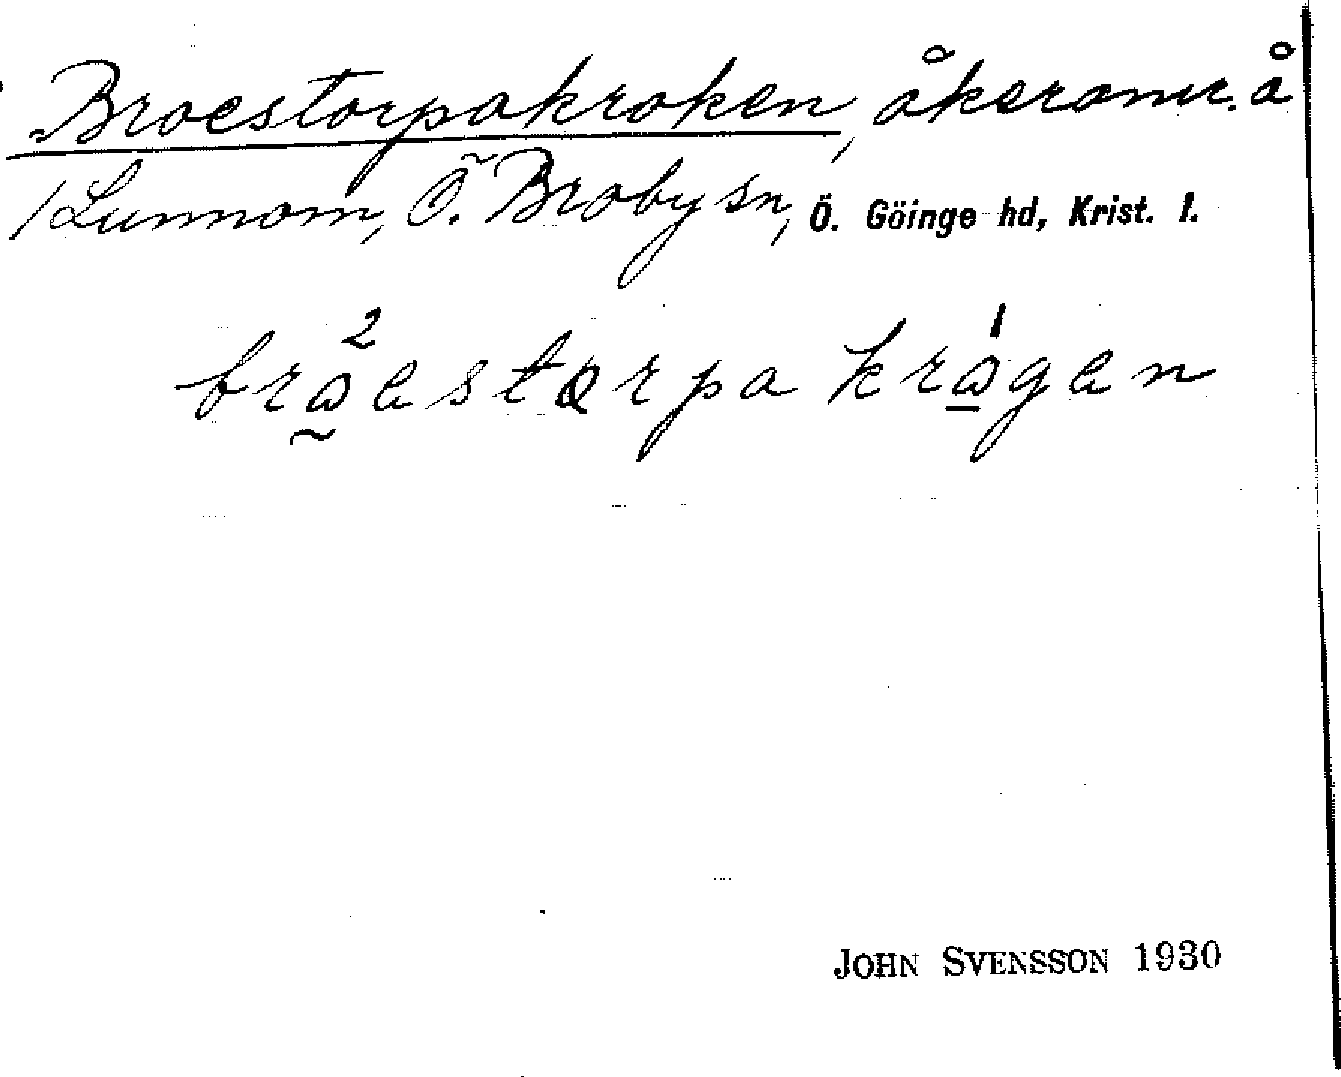 Broestorpakroken, åkeromr. å
/Lunnom, Ö. Broby sn, Ö. Göinge hd, Krist. l.
bråestarpa krågen
JOHN SVENSSON 1930